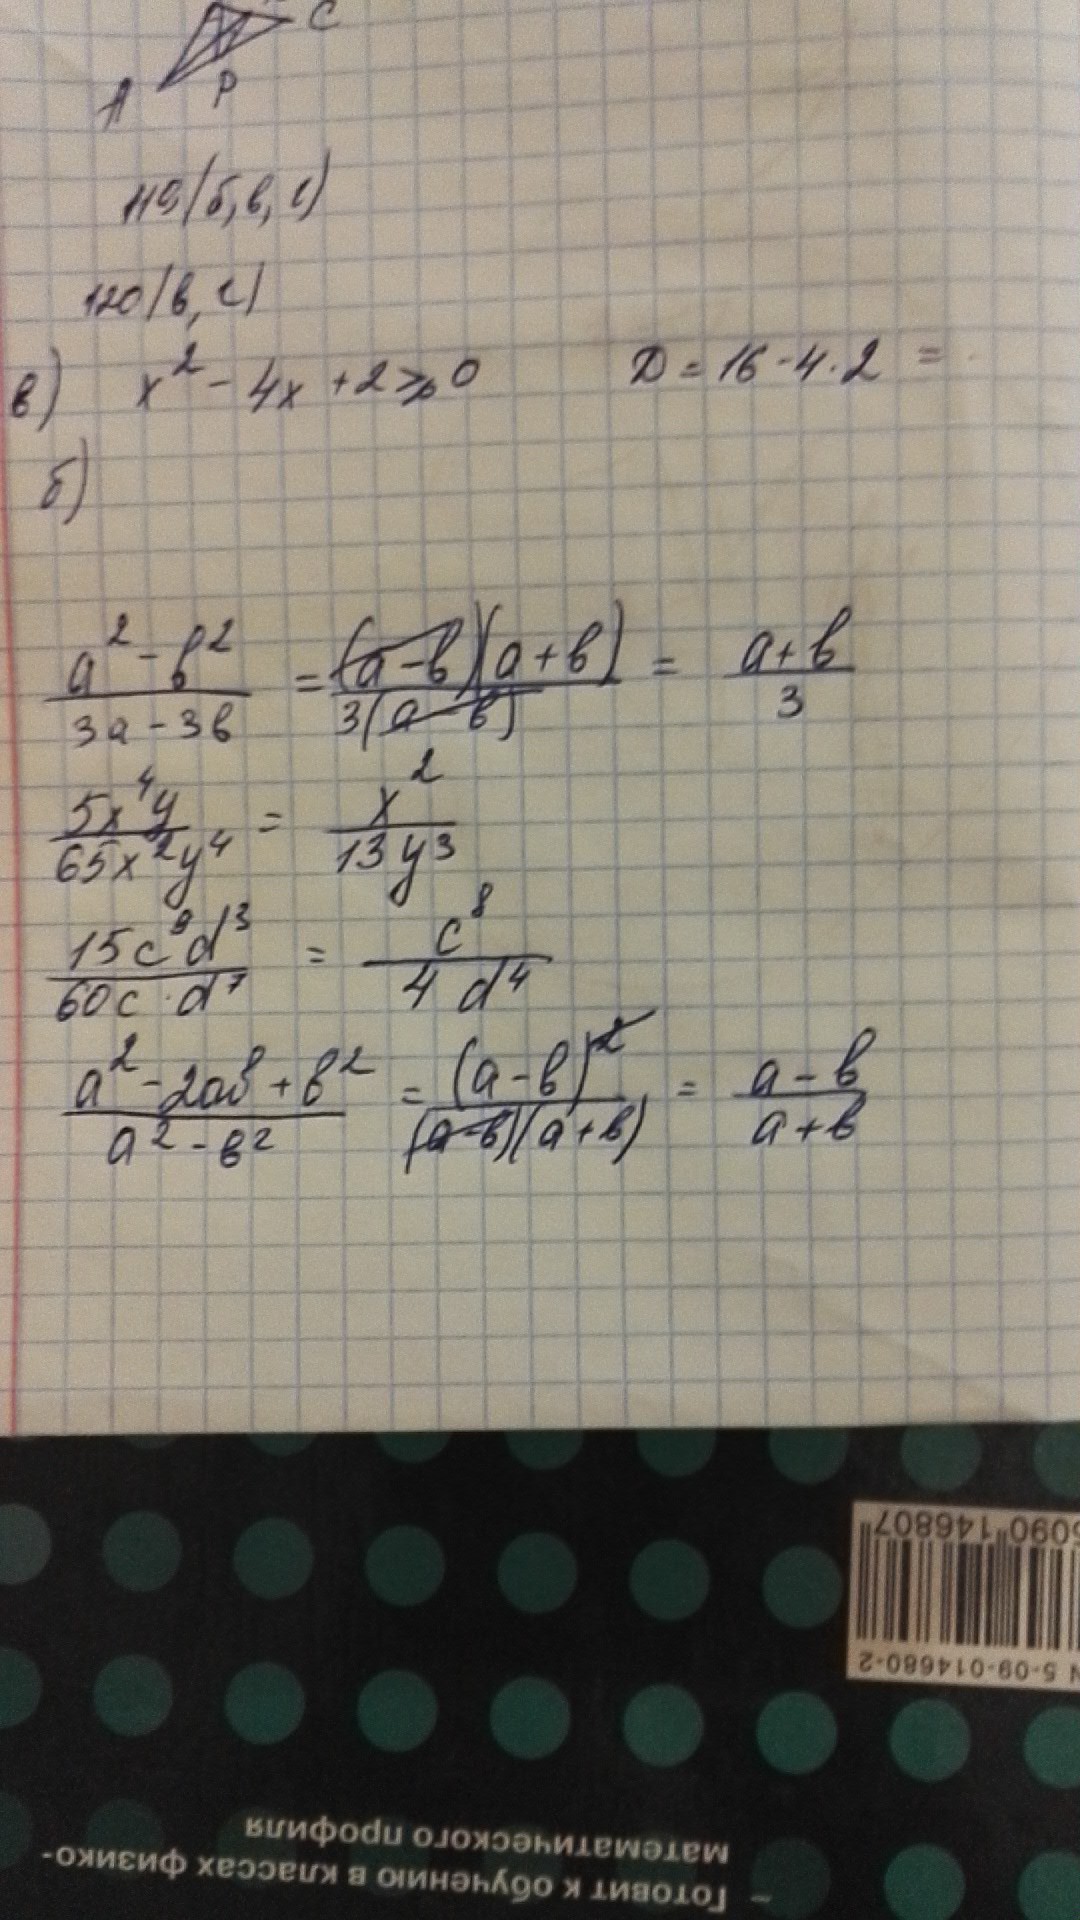 C
A
P
119(б, в, г)
120(в, г)
в) x² - 4x + 2 ≥ 0 D = 16 - 4·2 =
б)
(a² - b²)/(3a - 3b) = ((a - b)(a + b))/(3(a - b)) = (a + b)/3
5x⁴y/65x²y⁴ = x²/13y³
15c⁹d³/60c·d⁷ = c⁸/4d⁴
(a² - 2ab + b²)/(a² - b²) = (a - b)²/((a - b)(a + b)) = (a - b)/(a + b)
5090 146807
N 5-09-014680-2
– Готовит к обучению в классах физико-
математического профиля